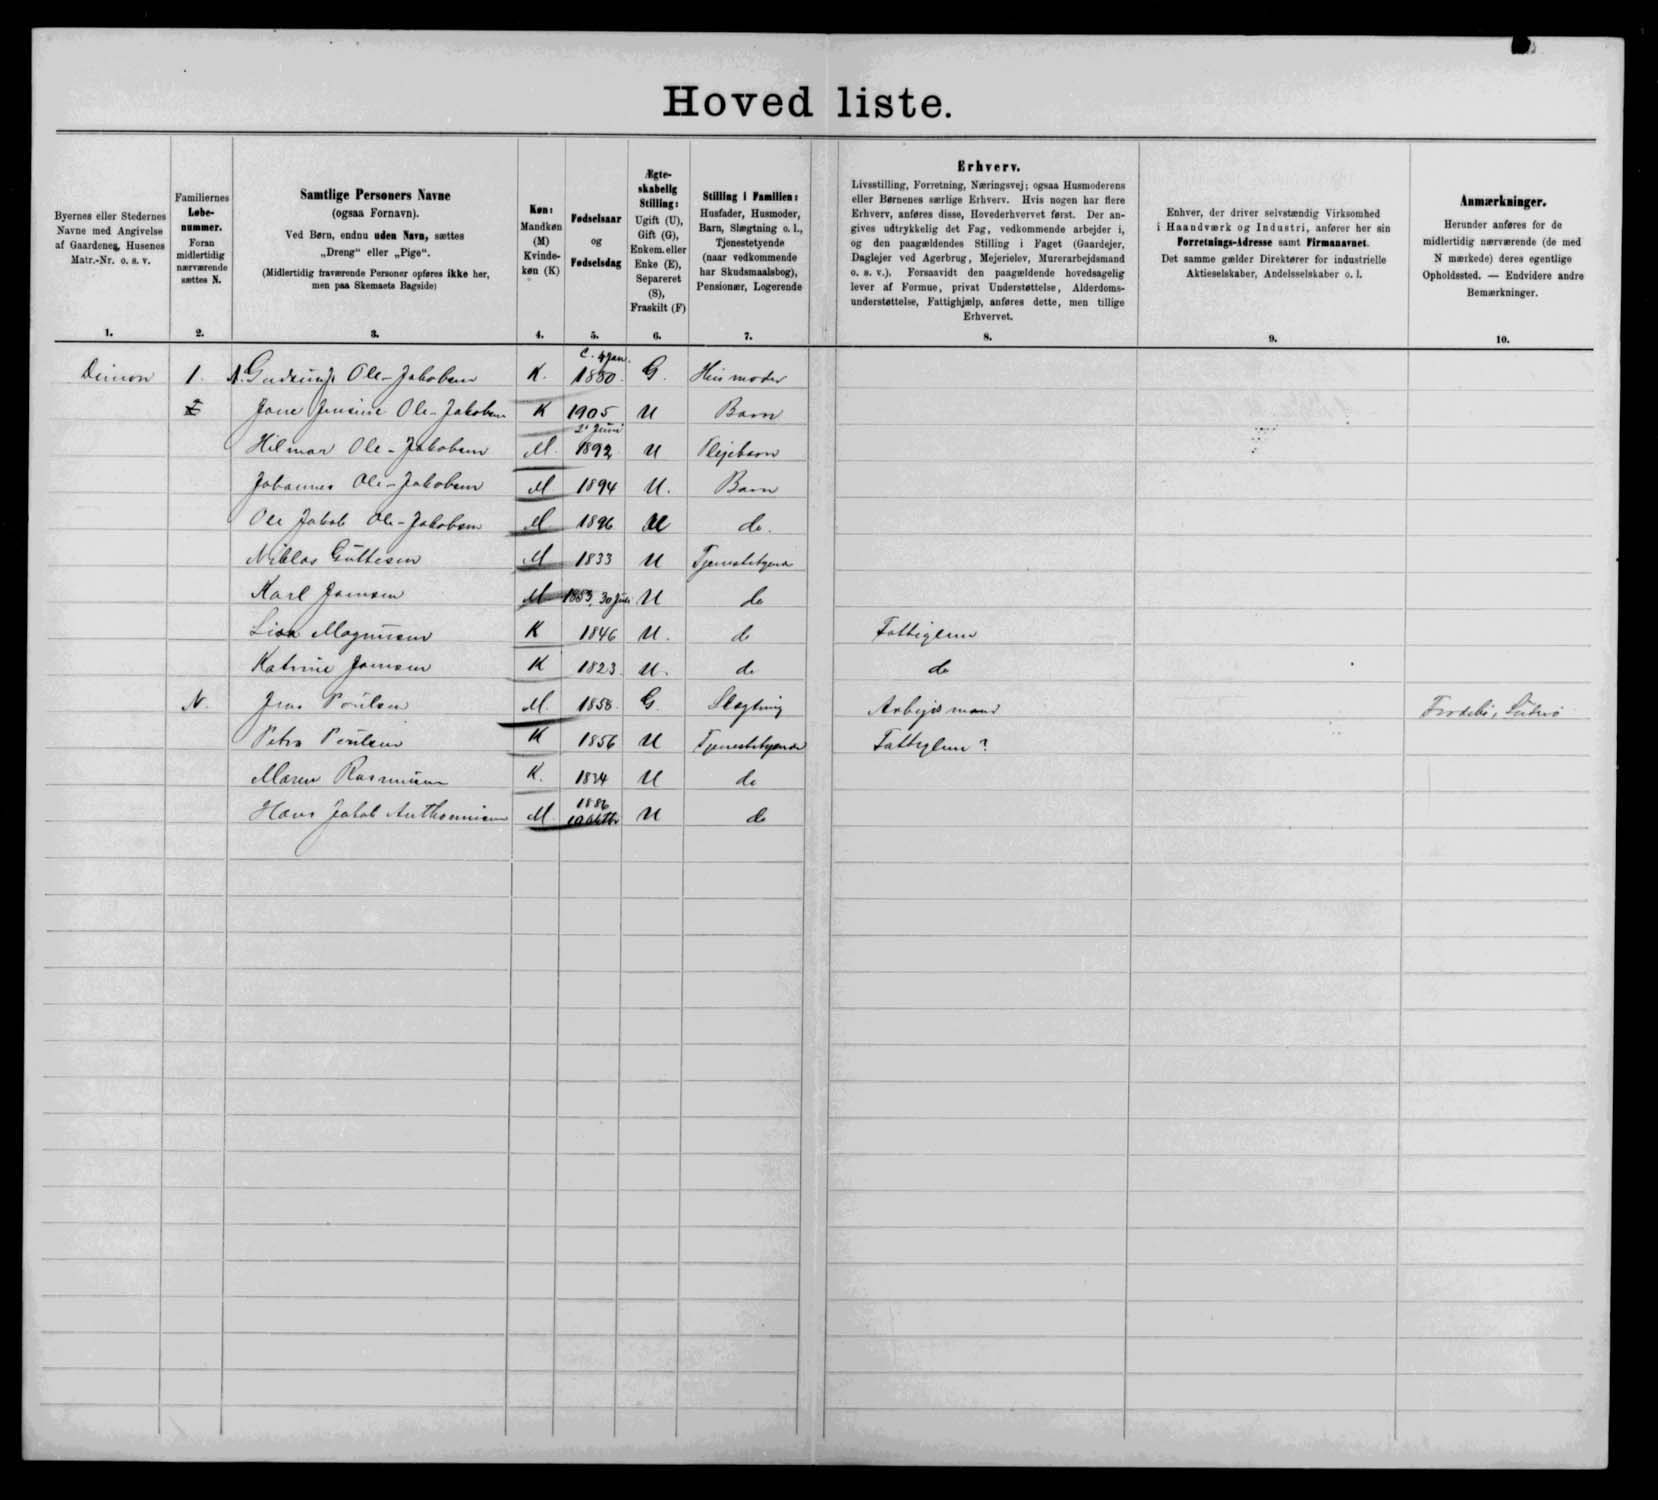 Hoved liste.
Byernes eller Stedernes
Navne med Angivelse
af Gaardenes, Husenes
Matr.-Nr. o. s. v.
1.
Familiernes
Løbe-
nummer.
Foran
midlertidig
nærværende
sættes N.
2.
Samtlige Personers Navne
(ogsaa Fornavn).
Ved Børn, endnu uden Navn, sættes
„Dreng“ eller „Pige“.
(Midlertidig fraværende Personer opføres ikke her,
men paa Skemaets Bagside)
3.
Køn:
Mandkøn
(M)
Kvinde-
køn (K)
4.
Fødselsaar
og
Fødselsdag
5.
Ægte-
skabelig
Stilling:
Ugift (U),
Gift (G),
Enkem. eller
Enke (E),
Separeret
(S),
Fraskilt (F)
6.
Stilling i Familien:
Husfader, Husmoder,
Barn, Slægtning o. l.,
Tjenestetyende
(naar vedkommende
har Skudsmaalsbog),
Pensionær, Logerende
7.
Erhverv.
Livsstilling, Forretning, Næringsvej; ogsaa Husmoderens
eller Børnenes særlige Erhverv. Hvis nogen har flere
Erhverv, anføres disse, Hovederhvervet først. Der an-
gives udtrykkelig det Fag, vedkommende arbejder i,
og den paagældendes Stilling i Faget (Gaardejer,
Daglejer ved Agerbrug, Mejerielev, Murerarbejdsmand
o. s. v.). Forsaavidt den paagældende hovedsagelig
lever af Formue, privat Understøttelse, Alderdoms-
understøttelse, Fattighjælp, anføres dette, men tillige
Erhvervet.
8.
Enhver, der driver selvstændig Virksomhed
i Haandværk og Industri, anfører her sin
Forretnings-Adresse samt Firmanavnet.
Det samme gælder Direktører for industrielle
Aktieselskaber, Andelsselskaber o. l.
9.
Anmærkninger.
Herunder anføres for de
midlertidig nærværende (de med
N mærkede) deres egentlige
Opholdssted. — Endvidere andre
Bemærkninger.
10.
Dimon 1. Ole-Jakobsen K. 4 Jan. G. Husmoder
Jensine Ole-Jakobsen K 1905 U Barn
Hilmar Ole-Jakobsen M. 1892 U Plejebarn
Johannes Ole-Jakobsen M 1894 U. Barn
Ole Jakob Ole-Jakobsen M 1896 U do.
Niklas Guttesen M 1833 U Tjenestetyende
Karl Joensen M 1883, 30 U do
Lisa Magnusen K 1846 U. do Fattiglem
Katrine Joensen K 1823 U. do do
N. Jens Poulsen M. 1858 G. Slægtning Arbejdsmand Frodebø, Suderø
Petra Poulsen K 1856 U Tjenestetyende Fattiglem?
Maren Rasmusen K. 1834 U do
Hans Jakob Anthoniusen M. 1886 U do